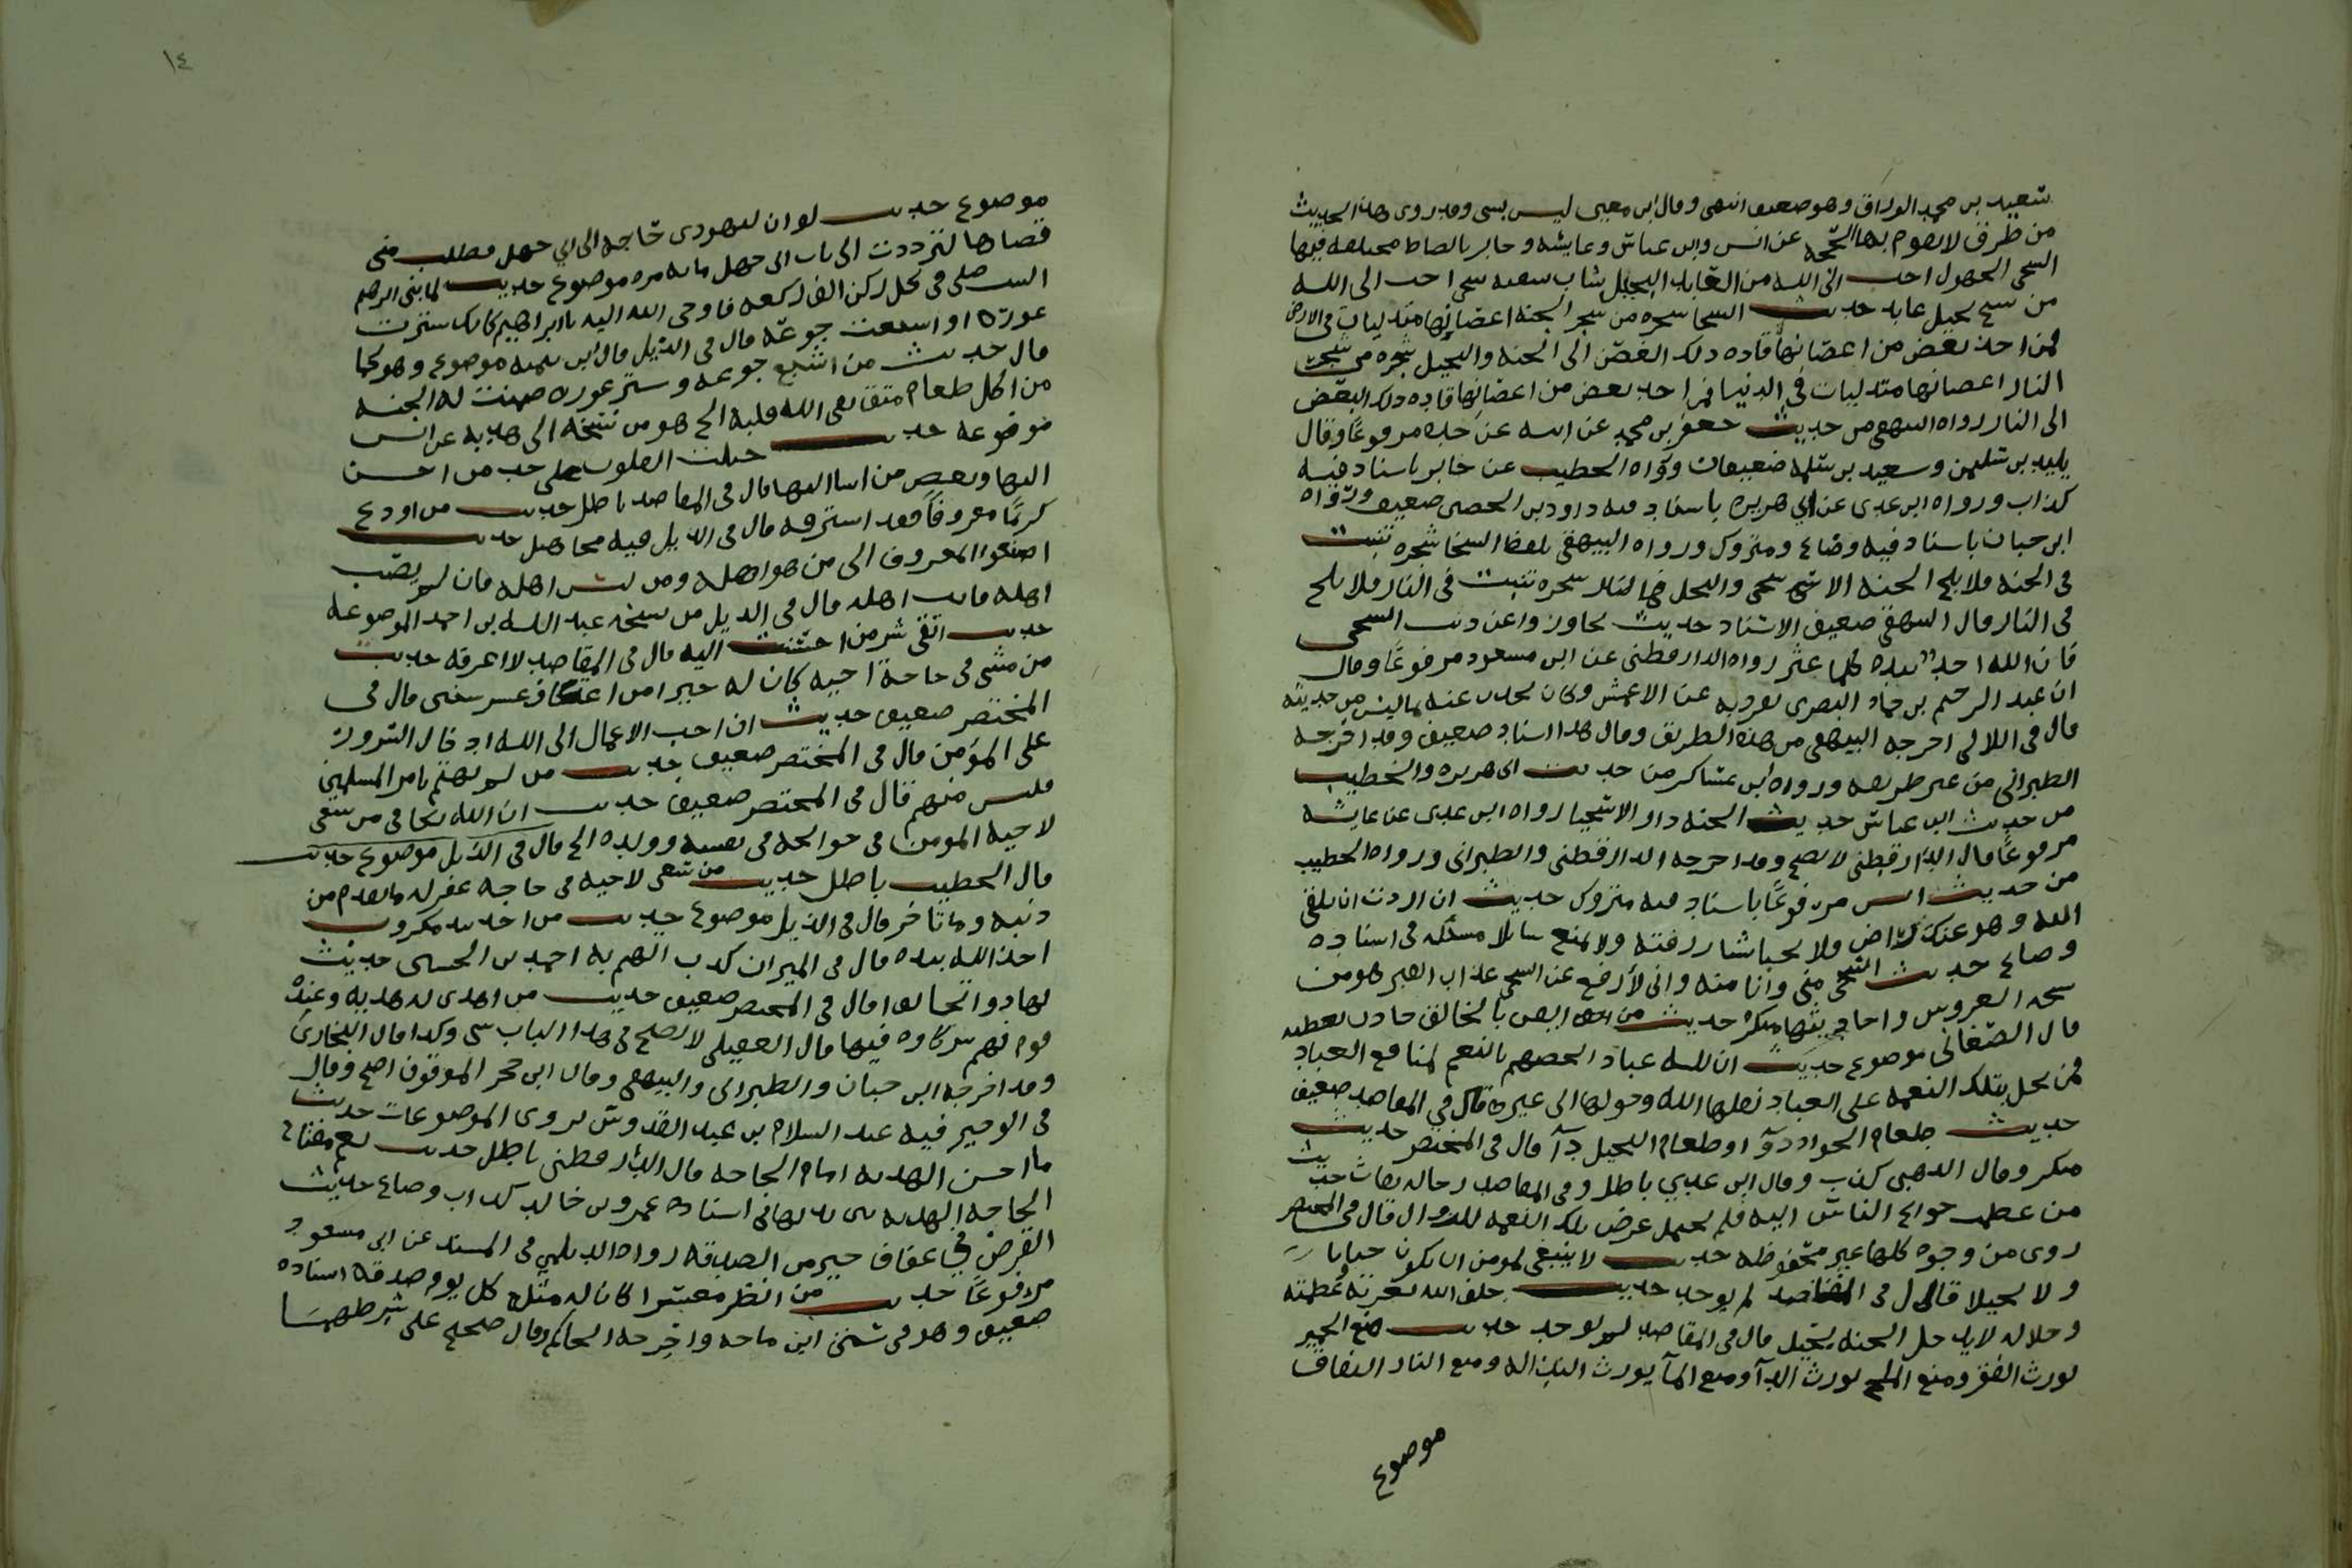 سعيد بن محمد الوراق وهو ضعيف انتهى وقال ابن معين ليس بشي وقد روى هذا الحديث
من طرق لا يقوم بها الحجة عن انس وابن عباس وعايشه وجابر بالفاظ مختلفه فيها
السخي الجهول احب الى الله من العابد البخيل شاب سفيه سخي احب الى الله
من شيخ بخيل عابد حديث السخا شجره من شجر الجنه اغصانها متدليات في الارض
فمن اخذ بغصن من اغصانها قاده ذلك الغصن الى الجنه والبخيل شجره من شجر
النار اغصانها متدليات في الدنيا فمن اخذ بغصن من اغصانها قاده ذلك الغصن
الى النار رواه البيهقي من حديث جعفر بن محمد عن ابيه عن جده مرفوعًا وقال
بليد بن سليمن وسعيد بن سلمه ضعيفان ورواه الخطيب عن جابر باسناد فيه
كذاب ورواه ابن عدي عن ابي هريره باسناد فيه داود بن الحصين ضعيف ورواه
ابن حبان باسناد فيه وضاع ومتروك ورواه البيهقي بلفظ السخا شجره تنبت
في الجنه فلا يلج الجنه الا سخي والبخل شجره تنبت في النار فلا يلج
في النار وقال البيهقي ضعيف الاسناد حديث تجاوزوا عن ذنب السخي
فان الله اخذ بيده كلما عثر رواه الدارقطني عن ابن مسعود مرفوعًا وقال
ان عبد الرحيم بن حماد البصري تفرد به عن الاعمش وكان يحدث عنه بما ليس من حديثه
قال في اللالي اخرجه البيهقي من هذه الطريق وقال هذا اسناد ضعيف وقد اخرجه
الطبراني من غير طريقه ورواه ابن عساكر من حديث ابي هريره والخطيب
من حديث ابن عباس حديث الجنه دار الاسخيا رواه ابن عدي عن عايشه
مرفوعًا قال الدارقطني لا يصح وقد اخرجه الدارقطني والطبراني ورواه الخطيب
من حديث انس مرفوعًا باسناد فيه متروك حديث ان اردت ان تلقى
الله وهو عنك راض ولا تمنع سايلا مسئله في اسناده
وضاع حديث السخي مني وانا منه واني لأرفع عن السخي عذاب القبر هو من
نسخه العروس واحاديثها منكره حديث من ايقن بالخلف جاد بالعطيه
قال الصغاني موضوع حديث ان لله عبادا اخصهم بالنعم لمنافع العباد
فمن بخل بتلك النعمه على العباد نقلها الله وحولها الى غيره قال في المقاصد ضعيف
حديث طعام الجواد دوآ وطعام البخيل دآ قال في المختصر حديث
منكر وقال الذهبي كذب وقال ابن عدي باطل وفي المقاصد رجاله ثقات حديث
من عظمت حوايج الناس اليه فلم يحتمل عرض تلك النعمه للزوال قال في المختصر
روى من وجوه كلها غير محفوظه حديث لا ينبغي لمومن ان يكون جبانا
ولا بخيلا قال في المقاصد لم يوجد حديث حلف الله بعزته وعظمته
وجلاله لا يدخل الجنه بخيل قال في المقاصد لم يوجد حديث منع الخمير
يورث الفقر ومنع الملح يورث الدآ ومنع المآ يورث النذاله ومنع النار النفاق
موضوع
١٤
موضوع حديث لو ان لليهودي حاجه الى ابي جهل فطلب مني
قضاها لترددت الى باب ابي جهل مايه مره موضوع حديث لما بنى ابرهيم
البيت صلى في كل ركن الف ركعه فاوحى الله اليه يا ابراهيم كانك سترت
عورة او اشبعت جوعه قال في الذيل قال ابن تيميه موضوع وهو كما
قال حديث من اشبع جوعه وستر عوره ضمنت له الجنه
من اكل طعام متقي نقى الله قلبه الخ هو من نسخه ابي هدبه عن انس
موضوعه حديث جبلت القلوب على حب من احسن
اليها وبغض من اسا اليها قال في المقاصد باطل حديث من اودع
كريمًا معروفًا فقد استرقه قال في الذيل فيه مجاهيل حديث
اصنعوا المعروف الى من هو اهله ومن ليس اهله فان لم يصب
اهله فانت اهله قال في الذيل من نسخه عبد الله بن احمد الموضوعه
حديث اتقي شر من احسنت اليه قال في المقاصد لا اعرفه حديث
من مشى في حاجة اخيه كان له خيرا من اعتكاف عشر سنين قال في
المختصر ضعيف حديث ان احب الاعمال الى الله ادخال السرور
على المؤمن قال في المختصر ضعيف حديث من لم يهتم بامر المسلمين
فليس منهم قال في المختصر ضعيف حديث ان الله يكافي من سعى
لاخيه المومن في حوايجه في نفسه وولده الخ قال في الذيل موضوع حديث
قال الخطيب باطل حديث من سعى لاخيه في حاجه غفر له ما تقدم من
ذنبه وما تاخر قال في الذيل موضوع حديث من اخذ بيد مكروب
اخذ الله بيده قال في الميزان كذب اتهم به احمد بن الحسين حديث
تهادوا تحابوا قال في المختصر ضعيف حديث من اهدى له هديه وعنده
قوم فهم شركاوه فيها قال العقيلي لا يصح في هذا الباب شي وكذا قال البخاري
وقد اخرجه ابن حبان والطبراني والبيهقي وقال ابن حجر الموقوف اصح وقال
في الوجيز فيه عبد السلام بن عبد القدوس يروى الموضوعات حديث
ما احسن الهديه امام الحاجه قال الدارقطني باطل حديث نعم مفتاح
الحاجه الهديه اسناده عمرو بن خالد كذاب وضاع حديث
القرض في عفاف خير من الصدقه رواه الديلمي في المسند عن ابن مسعود
مرفوعًا حديث من انظر معسرا كان له مثله كل يوم صدقه اسناده
ضعيف وهو في سنن ابن ماجه واخرجه الحاكم وقال صحيح على شرطهما